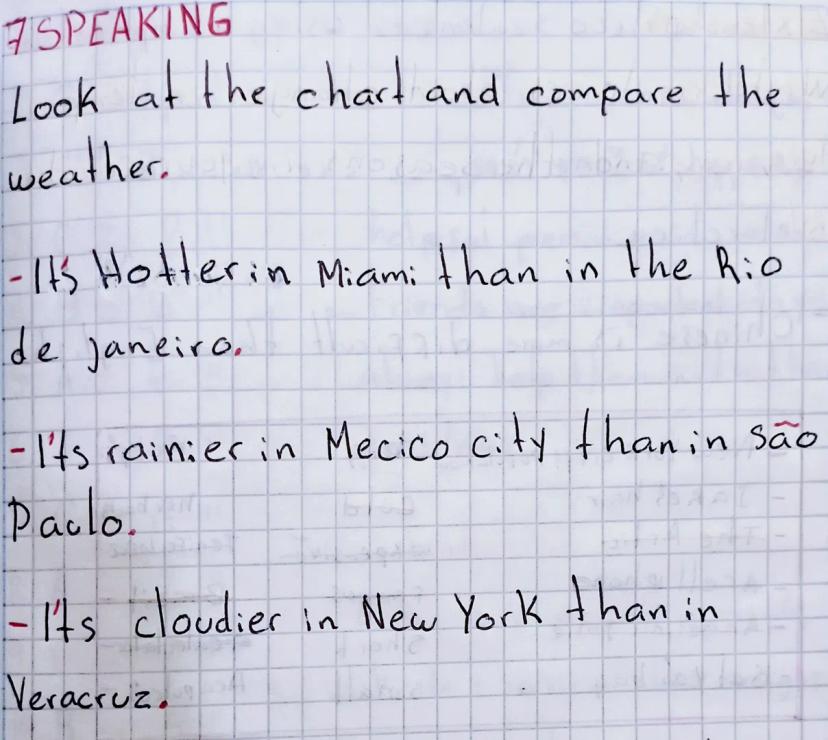 7 SPEAKING
Look at the chart and compare the
weather.
- It's Hotter in Miami than in the Rio
de janeiro.
- I'ts rainier in Mecico city than in são
Paolo.
- I'ts cloudier in New York than in
Veracruz.